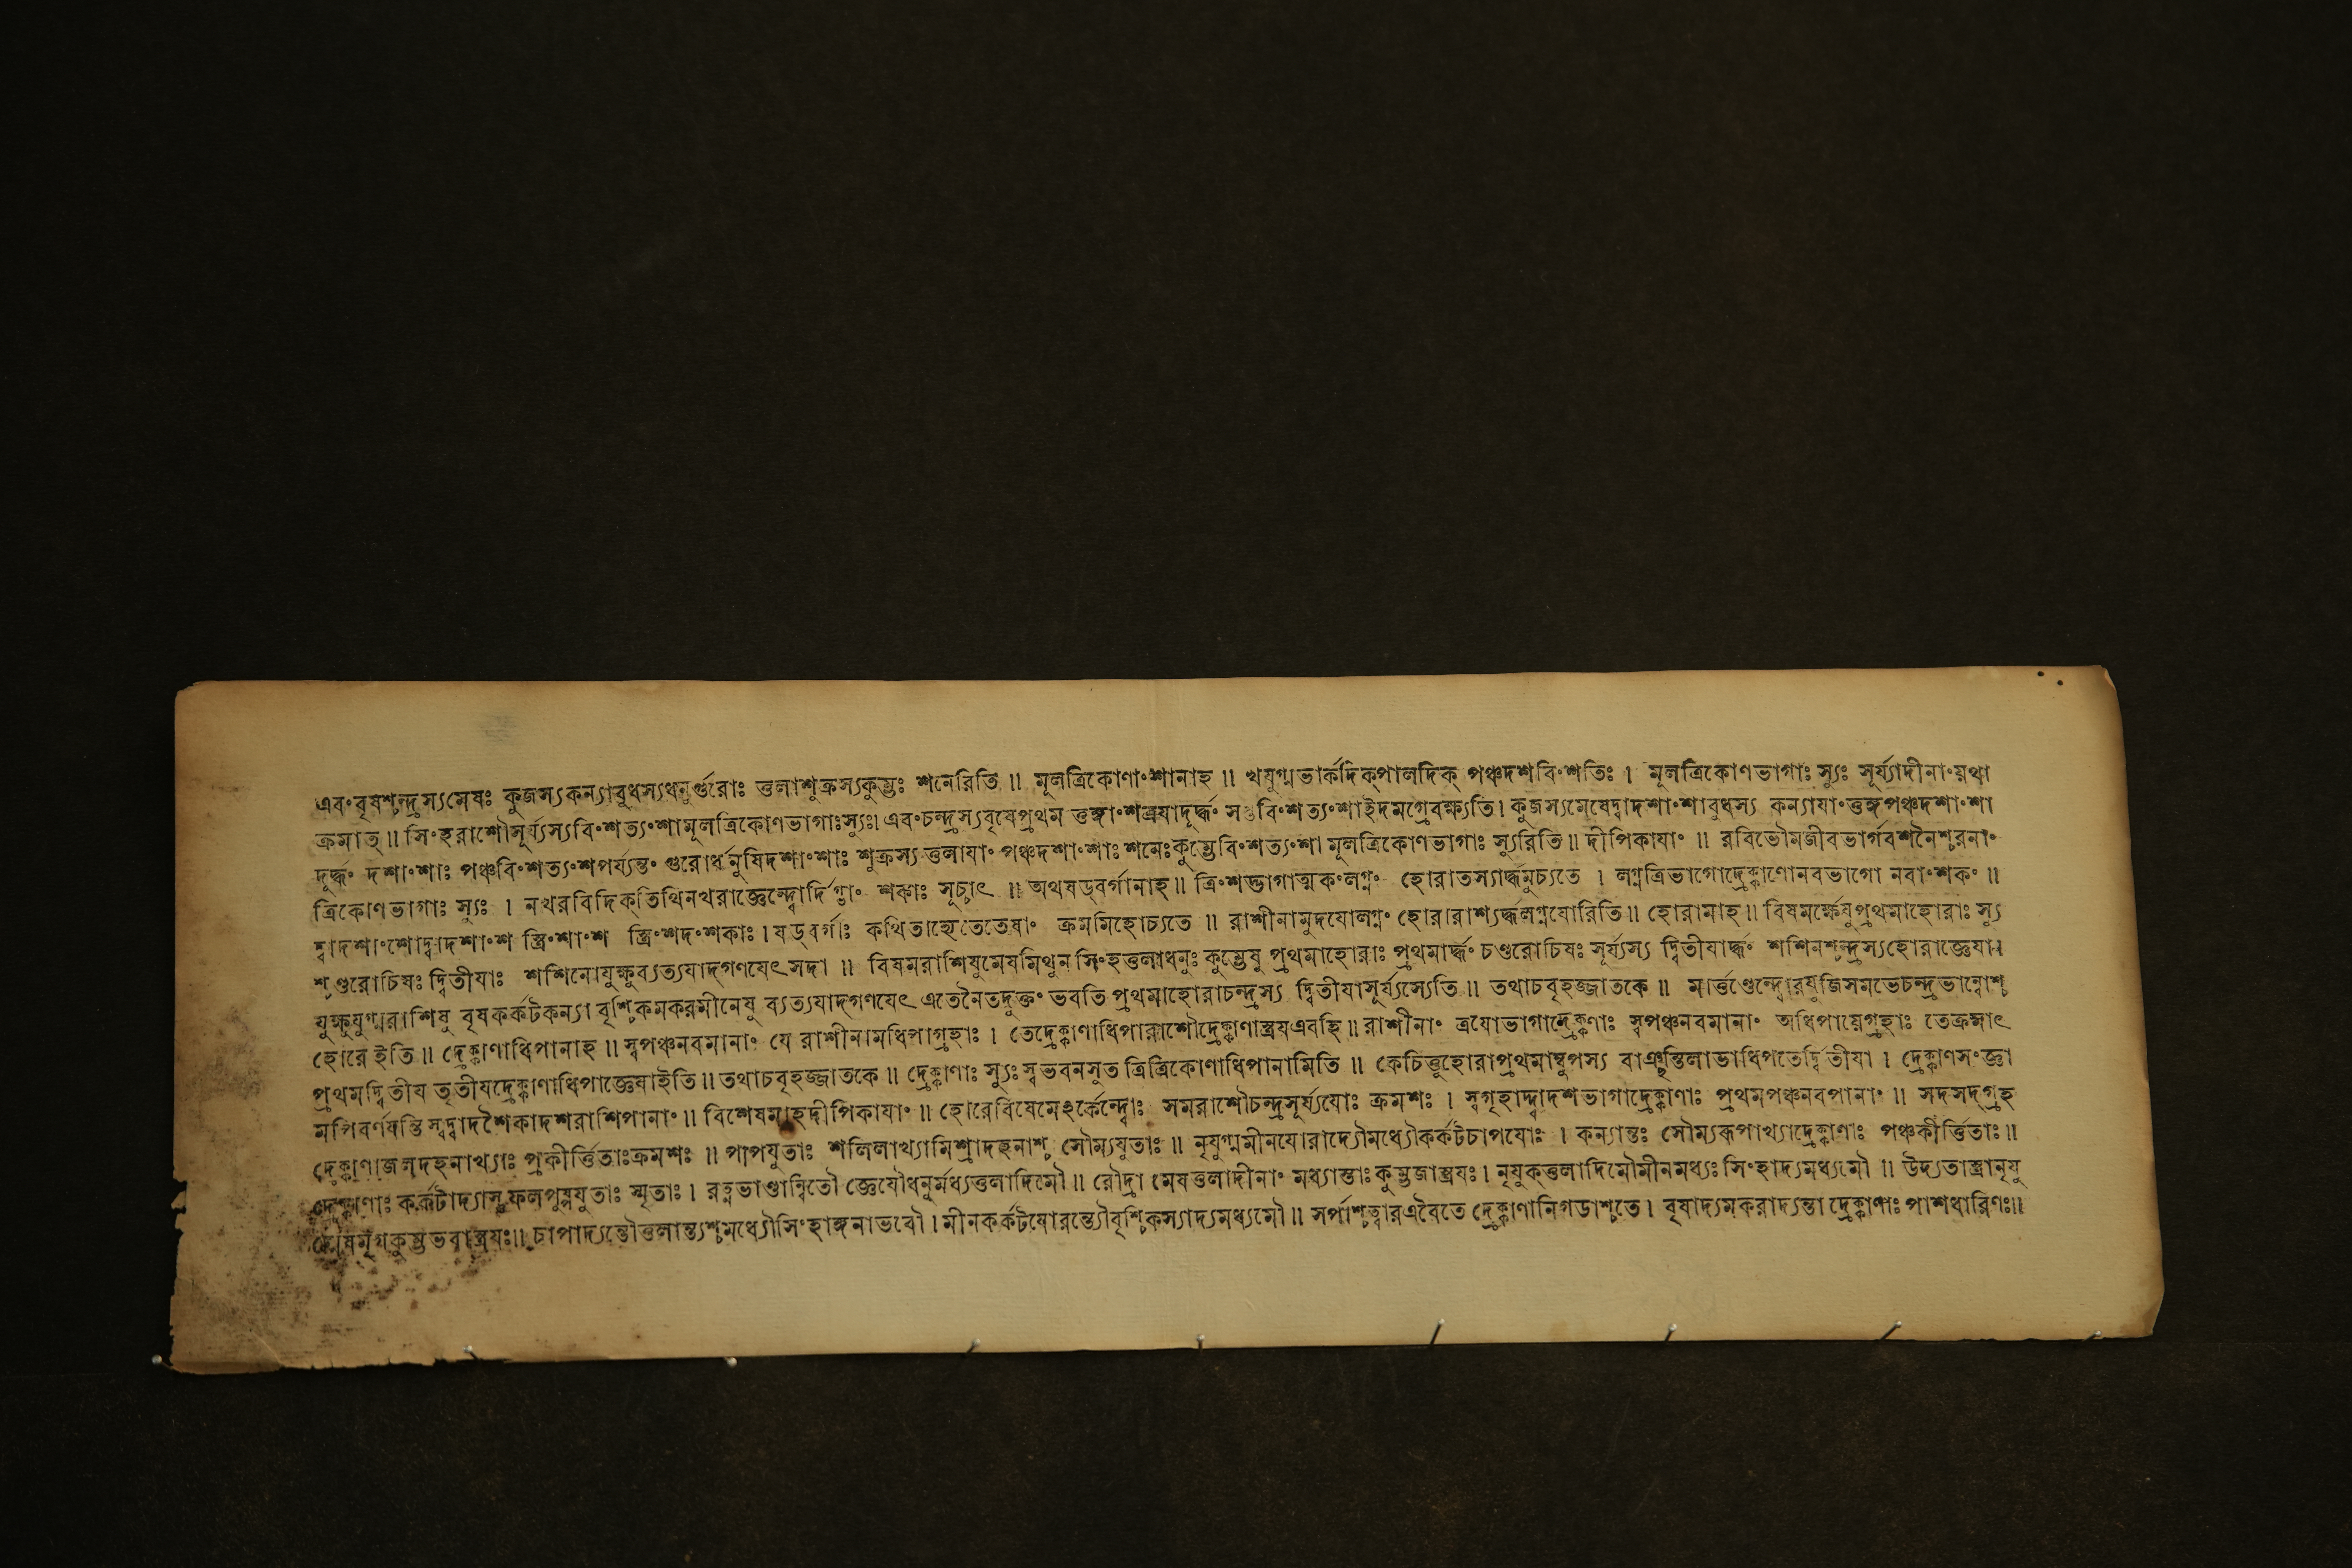 এবংবৃষশ্চন্দ্রস্যমেষঃ কুজস্যকন্যাবুধস্যধনুর্গুরোঃ তুলাশুক্রস্যকুম্ভঃ শনেরিতি ॥ মূলত্রিকোণাংশানাহ ॥ খযুগ্মভার্কদিক্পালদিক্ পঞ্চদশবিংশতিঃ । মূলত্রিকোণভাগাঃ স্যুঃ সূর্য্যাদীনাংয়থা
ক্রমাত্ ॥ সিংহরাশৌসূর্য্যস্যবিংশত্যংশামূলত্রিকোণভাগাঃস্যুঃ। এবংচন্দ্রস্যবৃষেপ্রথম তুঙ্গাংশত্রযাদূর্দ্ধং সপ্তবিংশত্যংশাইদমগ্রেবক্ষ্যতি। কুজস্যমেষেদ্বাদশাংশাবুধস্য কন্যাযাংতুঙ্গপঞ্চদশাংশা
দূর্দ্ধং দশাংশাঃ পঞ্চবিংশত্যংশপর্য্যন্তং গুরোর্ধনুষিদশাংশাঃ শুক্রস্য তুলাযাং পঞ্চদশাংশাঃ শনেঃকুম্ভেবিংশত্যংশা মূলত্রিকোণভাগাঃ স্যুরিতি ॥ দীপিকাযাং ॥ রবিভৌমজীবভার্গবশনৈশ্চরনাং
ত্রিকোণভাগাঃ স্যুঃ । নখরবিদিক্তিথিনখরাজ্ঞেন্দ্বোর্দিগ্ভাং শকাঃ সূচ্চাৎ ॥ অথষড্বর্গানাহ॥ ত্রিংশদ্ভাগাত্মকংলগ্নং হোরাতস্যার্দ্ধমুচ্যতে । লগ্নত্রিভাগোদ্রেক্কাণোনবভাগো নবাংশকং ॥
দ্বাদশাংশোদ্বাদশাংশ স্ত্রিংশাংশ স্ত্রিংশদংশকাঃ। ষড্বর্গাঃ কথিতাহ্যেতেতেষাং ক্রমমিহোচ্যতে ॥ রাশীনামুদযোলগ্নং হোরারাশ্যর্দ্ধলগ্নযোরিতি॥ হোরামাহ॥ বিষমর্ক্ষেষুপ্রথমাহোরাঃ স্যু
শ্চণ্ডরোচিষঃ দ্বিতীযাঃ শশিনোযুক্ষুব্যত্যযাদ্গণযেৎসদা ॥ বিষমরাশিষুমেষমিথুন সিংহতুলাধনুঃ কুম্ভেষু প্রথমাহোরাঃ প্রথমার্দ্ধং চণ্ডরোচিষঃ সূর্য্যস্য দ্বিতীযার্দ্ধং শশিনশ্চন্দ্রস্যহোরাজ্ঞেযা।
যুক্ষুযুগ্মরাশিষু বৃষকর্কটকন্যা বৃশ্চিকমকরমীনেষু ব্যত্যযাদ্গণযেৎ এতেনৈতদুক্তং ভবতি প্রথমাহোরাচন্দ্রস্য দ্বিতীযাসূর্য্যস্যেতি ॥ তথাচবৃহজ্জাতকে ॥ মার্ত্তণ্ডেন্দ্বোরযুজিসমভেচন্দ্রভান্বোশ্চ
হোরে ইতি ॥ দ্রেক্কাণাধিপানাহ ॥ স্বপঞ্চনবমানাং যে রাশীনামধিপাগ্রহাঃ । তেদ্রেক্কাণাধিপারাশৌদ্রেক্কাণাস্ত্রযএবহি ॥ রাশীনাং ত্রযোভাগাদ্রেক্কাণাঃ স্বপঞ্চনবমানাং অধিপাযেগ্রহাঃ তেক্রমাৎ
প্রথমদ্বিতীয তৃতীযদ্রেক্কাণাধিপাজ্ঞেযাইতি ॥ তথাচবৃহজ্জাতকে ॥ দ্রেক্কাণাঃ স্যুঃ স্বভবনসুত ত্রিত্রিকোণাধিপানামিতি ॥ কেচিত্তুহোরাপ্রথমাম্বুপস্য বাঞ্ছন্তিলাভাধিপতের্দ্বিতীযা । দ্রেক্কাণসংজ্ঞা
মপিবর্ণযন্তি স্বদ্বাদশৈকাদশরাশিপানাং ॥ বিশেষমাহদীপিকাযাং ॥ হোরেবিষেমেঽর্কেন্দ্বোঃ সমরাশৌচন্দ্রসূর্য্যযোঃ ক্রমশঃ । স্বগৃহাদ্দ্বাদশভাগাদ্রেক্কাণাঃ প্রথমপঞ্চনবপানাং ॥ সদসদ্গ্রহ
দ্রেক্কাণাজলদহনাখ্যাঃ প্রকীর্ত্তিতাঃক্রমশঃ ॥ পাপযুতাঃ শলিলাখ্যামিশ্রাদহনাশ্চ সৌম্যযুতাঃ ॥ নৃযুগ্মমীনযোরাদ্যৌমধ্যৌকর্কটচাপযোঃ । কন্যান্তঃ সৌম্যরূপাখ্যাদ্রেক্কাণাঃ পঞ্চকীর্ত্তিতাঃ॥
দ্রেক্কাণাঃ কর্কটাদ্যাস্তুফলপুষ্পযুতাঃ স্মৃতাঃ । রত্নভাণ্ডান্বিতৌ জ্ঞেযৌধনুর্মধ্যতুলাদিমৌ ॥ রৌদ্রা মেষতুলাদীনাং মধ্যান্তাঃ কুম্ভজাস্ত্রযঃ । নৃযুক্তুলাদিমৌমীনমধ্যঃ সিংহাদ্যমধ্যমৌ ॥ উদ্যতাস্ত্রানৃযু
মৃগকুম্ভভবাস্ত্রযঃ॥ চাপাদ্যন্তৌতুলান্ত্যশ্চমধ্যৌসিংহাঙ্গনাভবৌ । মীনকর্কটযোরন্ত্যৌবৃশ্চিকস্যাদ্যমধ্যমৌ ॥ সর্পাশ্চত্বারএবৈতে দ্রেক্কাণানিগডাশ্চতে । বৃষাদ্যমকরাদ্যন্তা দ্রেক্কাণাঃ পাশধারিণঃ॥